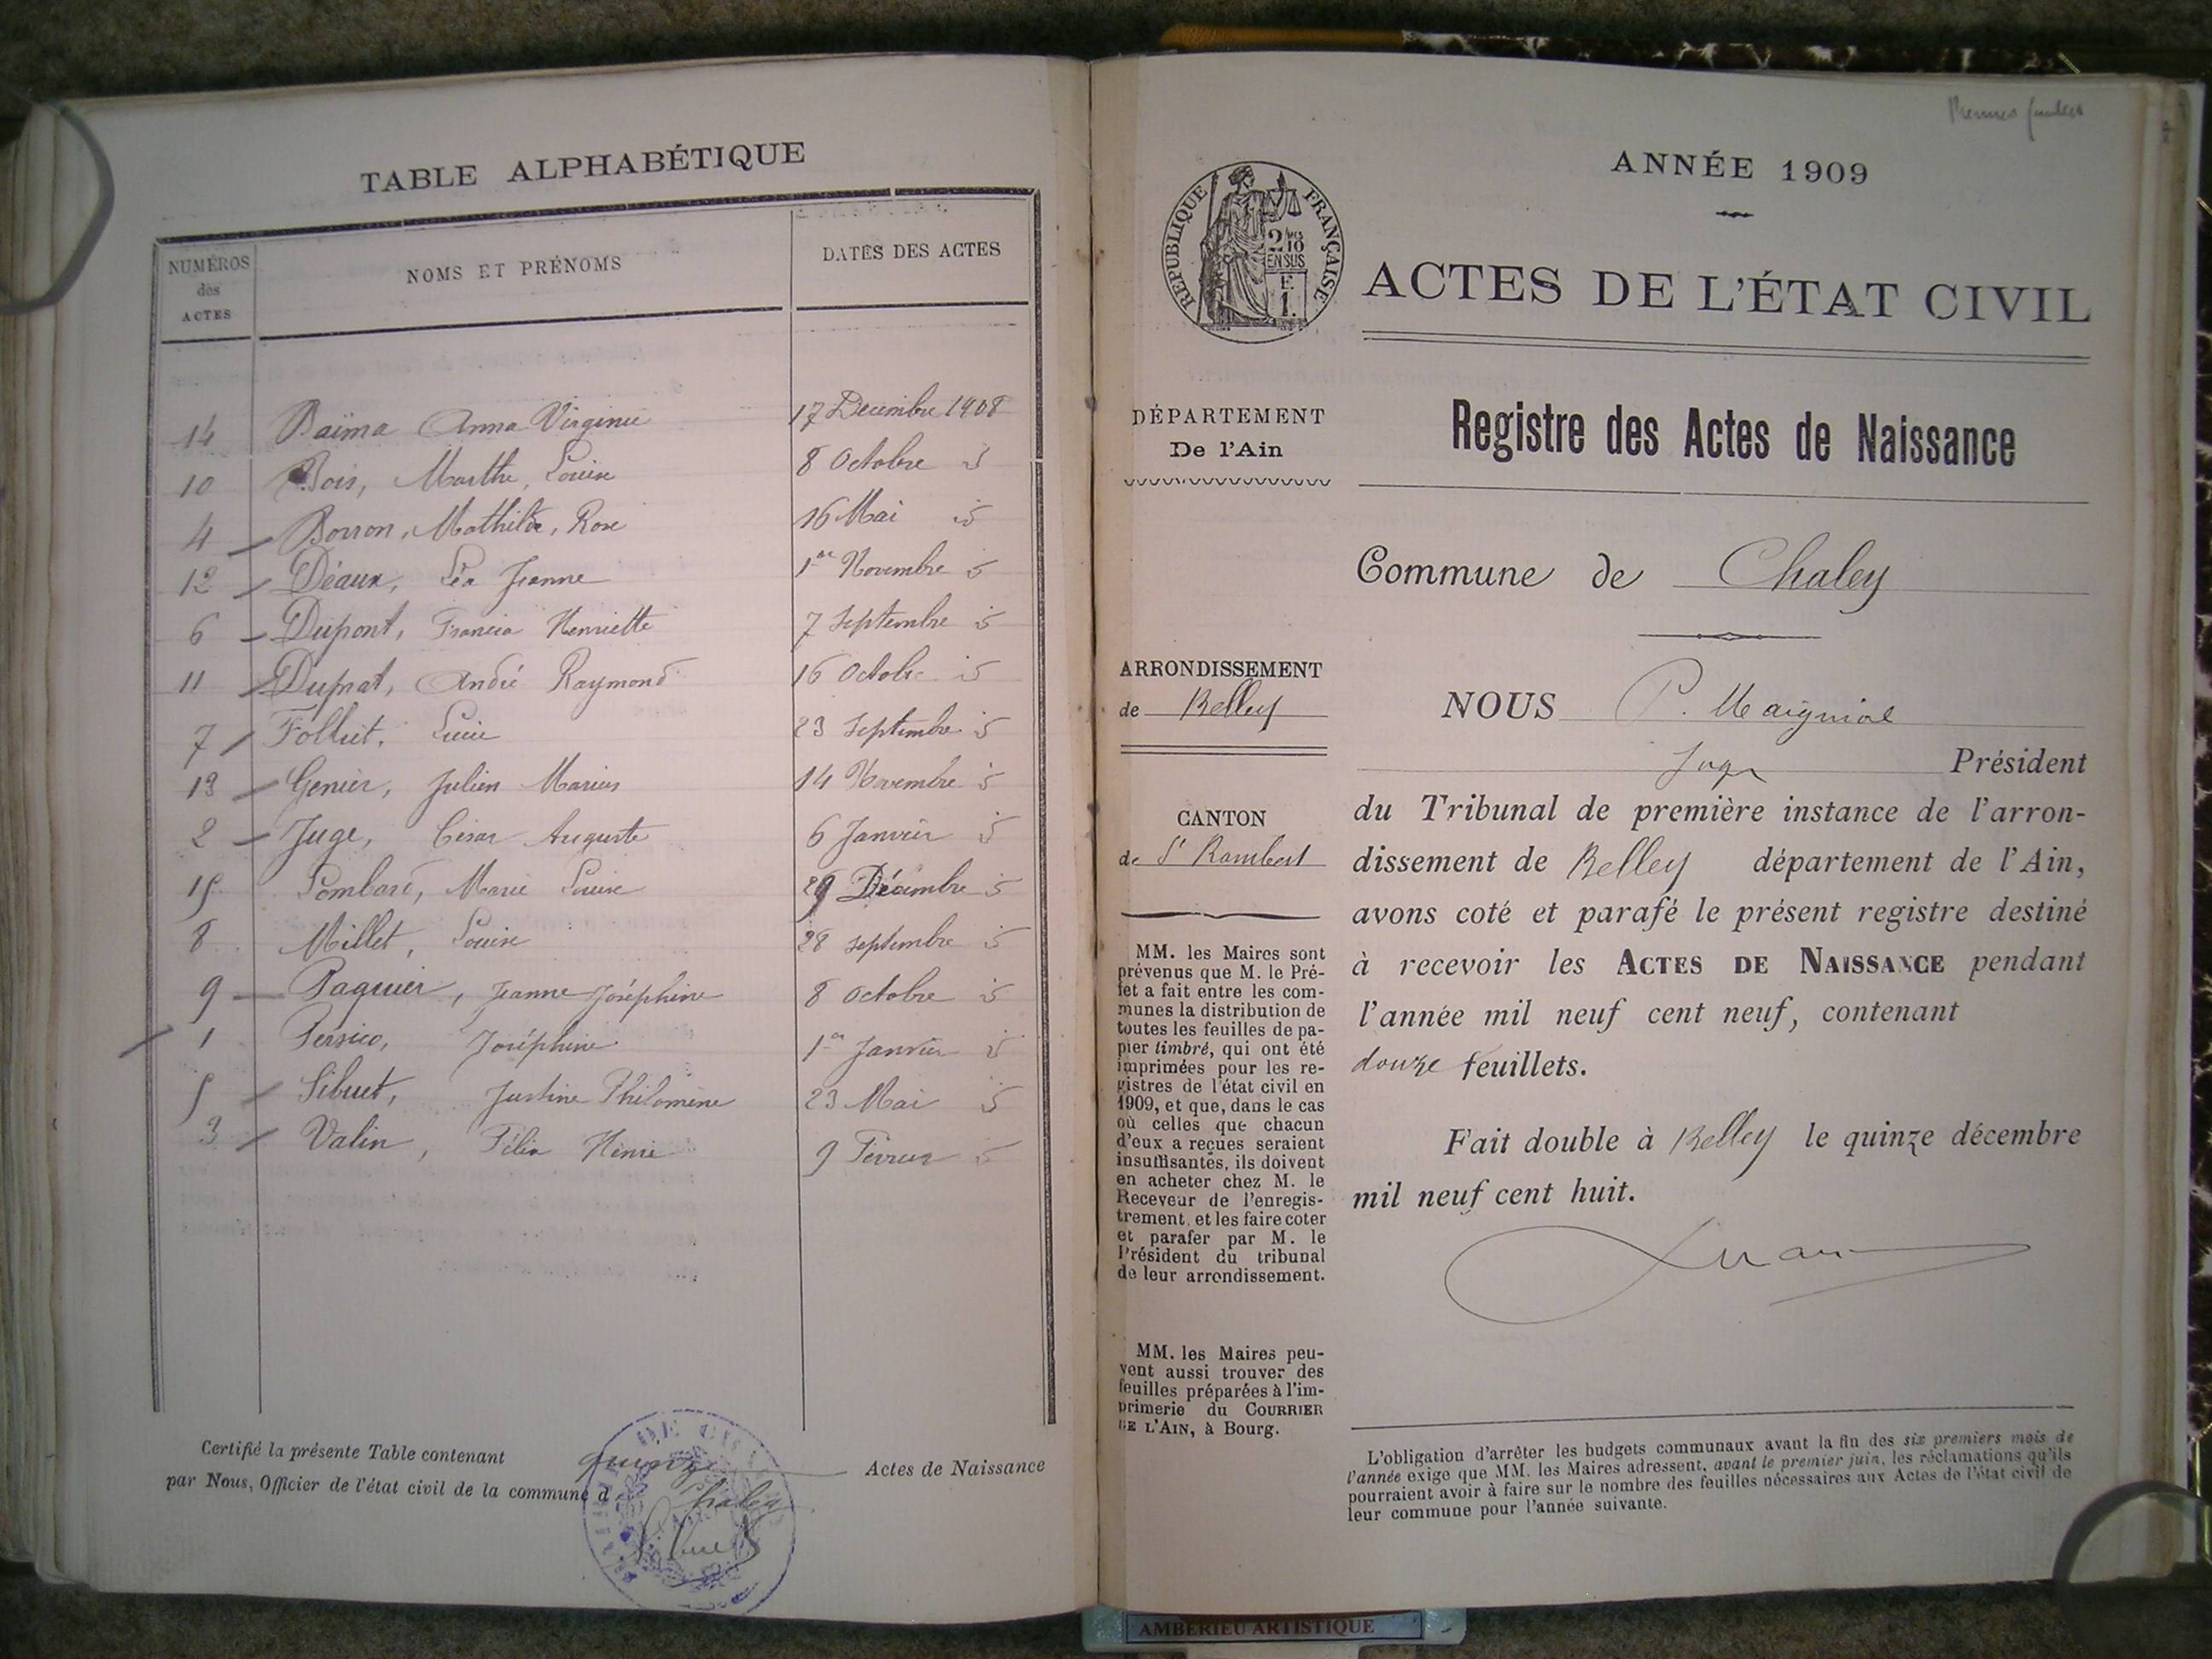 TABLE ALPHABÉTIQUE
NUMÉROS des ACTES
NOMS ET PRÉNOMS
DATES DES ACTES
14 Baïma Anna Virginie 17 Décembre 1908
10 Bois, Marthe, Louise 8 Octobre id
4 Borron, Mathilde, Rose 16 Mai id
12 Déaux, Léa Jeanne 1er Novembre id
6 Dupont, Francia Henriette 7 Septembre id
11 Duprat, André Raymond 16 Octobre id
7 Folliet, Lucie 23 Septembre id
13 Genier, Julien Marius 14 Novembre id
2 Juge, César Auguste 6 Janvier id
15 Lombard, Marie Louise 29 Décembre id
8 Millet, Louise 28 septembre id
9 Paquier, Jeanne Joséphine 8 Octobre id
1 Persico, Joséphine 1er Janvier id
5 Sibuet, Justine Philomène 23 Mai id
3 Valin, Félix Henri 9 Février id
Certifié la présente Table contenant quinze Actes de Naissance
par Nous, Officier de l'état civil de la commune d Chaley
Sibuet
Premier feuillet
ANNÉE 1909
RÉPUBLIQUE FRANÇAISE
2/10
EN SUS
ACTES DE L'ÉTAT CIVIL
DÉPARTEMENT
De l'Ain
Registre des Actes de Naissance
Commune de Chaley
ARRONDISSEMENT
de Belley
CANTON
de St Rambert
MM. les Maires sont
prévenus que M. le Pré-
fet a fait entre les com-
munes la distribution de
toutes les feuilles de pa-
pier timbré, qui ont été
imprimées pour les re-
gistres de l'état civil en
1909, et que, dans le cas
où celles que chacun
d'eux a reçues seraient
insuffisantes, ils doivent
en acheter chez M. le
Receveur de l'enregis-
trement, et les faire coter
et parafer par M. le
Président du tribunal
de leur arrondissement.
MM. les Maires peu-
vent aussi trouver des
feuilles préparées à l'im-
primerie du COURRIER
DE L'AIN, à Bourg.
NOUS P. Maignial
Juge Président
du Tribunal de première instance de l'arron-
dissement de Belley département de l'Ain,
avons coté et parafé le présent registre destiné
à recevoir les ACTES DE NAISSANCE pendant
l'année mil neuf cent neuf, contenant
douze feuillets.
Fait double à Belley le quinze décembre
mil neuf cent huit.
L'obligation d'arrêter les budgets communaux avant la fin des six premiers mois de
l'année exige que MM. les Maires adressent, avant le premier juin, les réclamations qu'ils
pourraient avoir à faire sur le nombre des feuilles nécessaires aux Actes de l'état civil de
leur commune pour l'année suivante.
AMBERIEU ARTISTIQUE